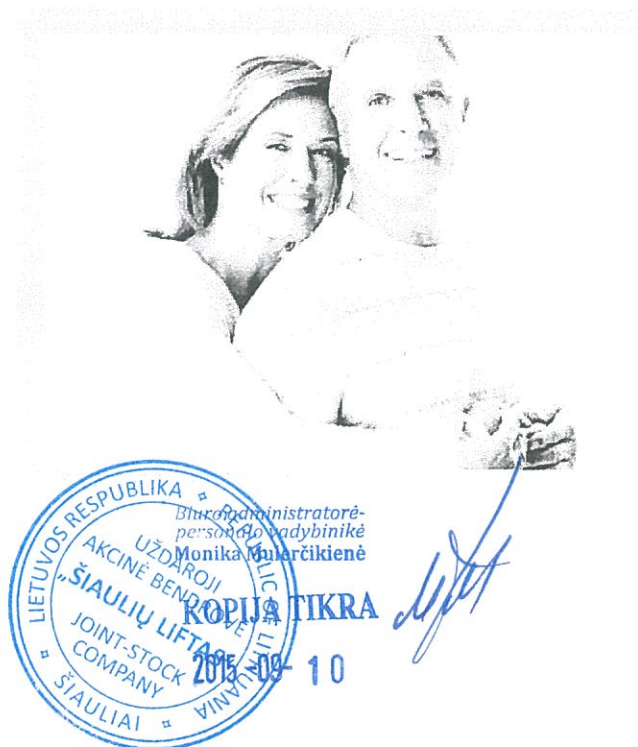 LIETUVOS RESPUBLIKA ¤ REPUBLIC OF LITHUANIA ¤ ŠIAULIAI ¤
UŽDAROJI
AKCINĖ BENDROVĖ
„ŠIAULIŲ LIFTAS"
JOINT-STOCK
COMPANY
Biuro administratorė-
personalo vadybinikė
Monika Mulerčikienė
KOPIJA TIKRA
2015 -09- 10